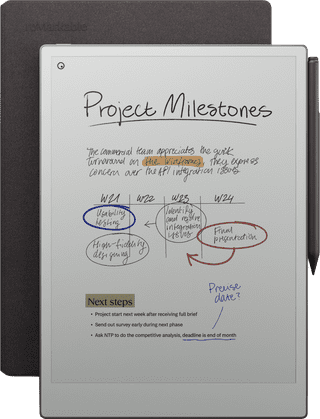 Project Milestones
"The commercial team appreciates the quick
turnaround on the wireframes, they express
concern over the API integration issues
W21 W22 W23 W24
Usability
testing
Identify
and
integration
issues
Final
presentation
High-fidelity
designing
Precise
date?
Next steps
• Project start next week after receiving full brief
• Send out survey early during next phase
• Ask NTP to do the competitive analysis, deadline is end of month